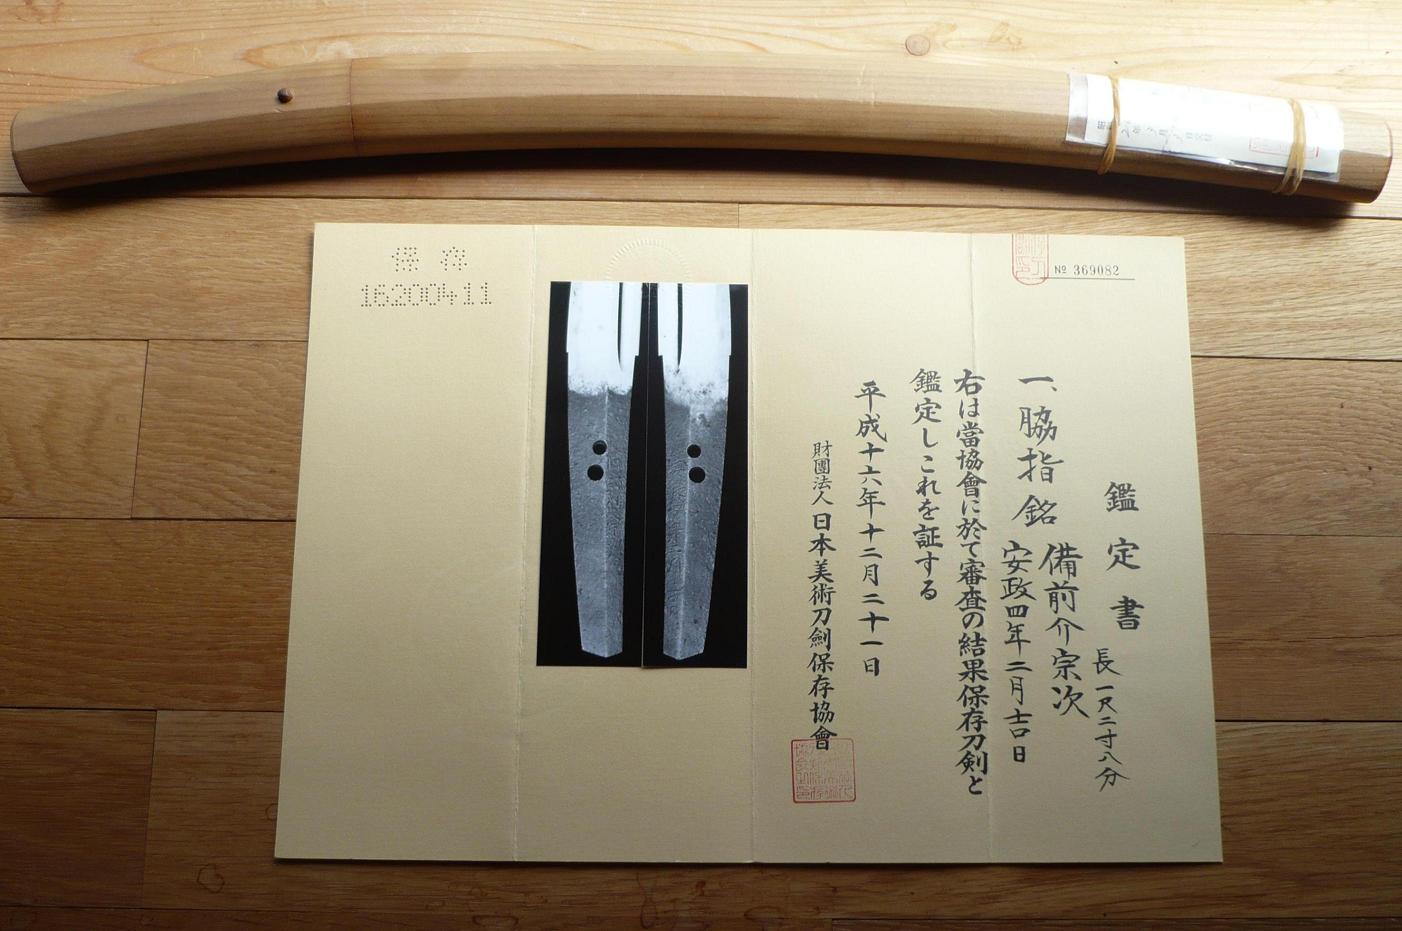 保存
16200411
№ 369082
鑑定書
長一尺二寸八分
一、脇指 銘 備前介宗次
安政四年二月吉日
右は當協會に於て審査の結果保存刀剣と
鑑定しこれを証する
平成十六年十二月二十一日
財團法人 日本美術刀劍保存協會